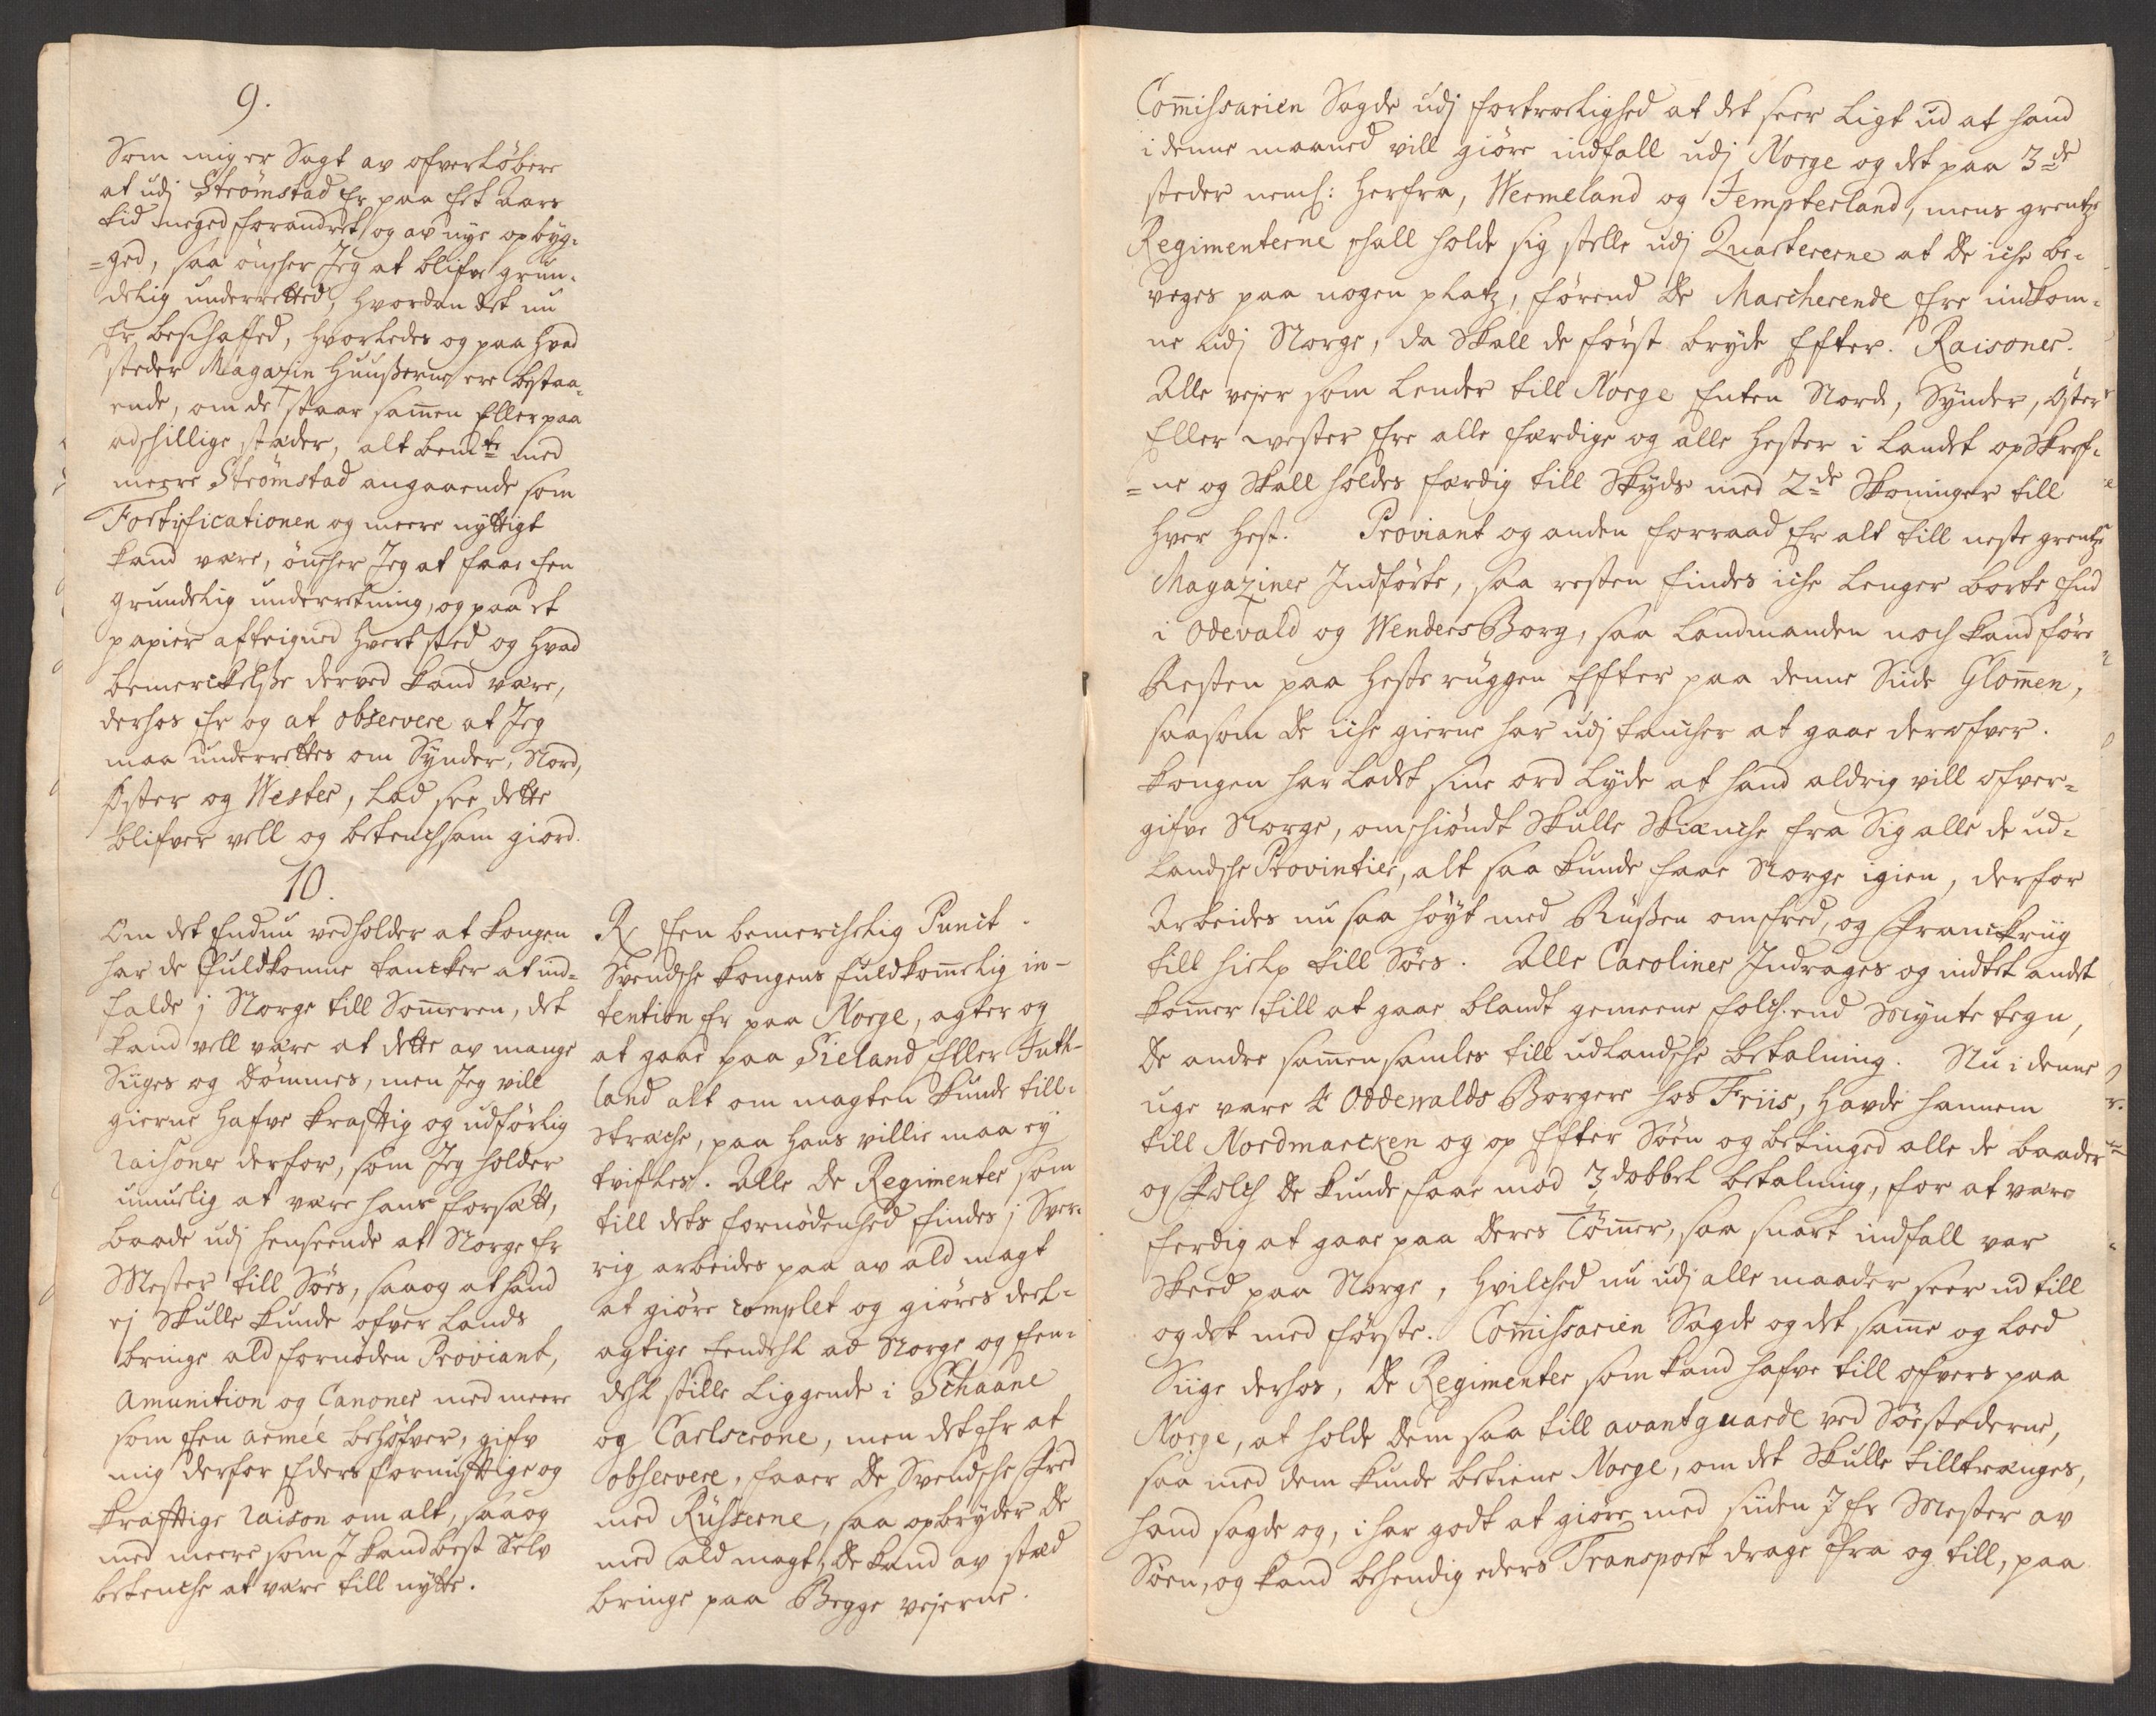 9.
Som mig er Sagt av ofverløbere
at udj Strømstad er paa Et Aars
tid meged forandret og av nye opbyg-
=ged, saa ønscher Jeg at blifve grun-
delig underretted, hvordan det nu
Er beschaffed, hvorledes og paa hvad
steder Magazin Huusserne ere bestaa-
ende, om de staar samen Eller paa
adschillige stæder, alt bemte med
meere Strømstad angaaende som
Fortificationen og meere nyttigt
kand være, ønscher Jeg at faae Een
grundelig underretning, og paa et
papier afteigned hvert sted og hvad
bemerckelsse derved kand være,
derhos Er og at observere at Jeg
maa underrettes om Synder, Nord,
Øster og Wester, Lad see dette
blifver vell og betencksam giord.
10.
Om det Endnu vedholder at kongen
har de Fuldkomne tancker at ind-
falde j Norge till Someren, det
kand vell være at dette av mange
Siiges og Dømmes, men Jeg vill
gierne hafve kraftig og udførlig
raisoner derfor, som Jeg holder
umuelig at være hans forsætt,
baade udj henseende at Norge Er
Mester till Søes, saa og at hand
ej Skulle kunde ofver Lands
bringe ald fornøden Proviant,
Amunition og Canoner med meere
som Een armée behøfver, gifv
mig derfor Eders fornufftige og
krafftige raison om alt, saa og
med meere som I kand best Selv
betenche at være till nytte.
R Een bemerchelig Punct.
Svendsche kongens fuldkommelig in-
tention Er paa Norge, agter og
at gaae paa Sieland Eller Juth-
land alt om magten kunde till-
strache, paa hans villie maa ey
tvifles. Alle De Regimenter som
till dets fornødenhed findes j Sver-
rig arbeides paa av ald magt
at giøre complet og giøres deel-
agtige Eendeel ad Norge og Een-
deel stille Liggende i Schaane
og Carlscrone, men det Er at
observere, faaer De Svendsche Fred
med Russerne, saa opbryder De
med ald magt, De kand av sted
bringe paa Begge vejerne.
Comissarien Sagde udj fortroelighed at det seer Ligt ud at hand
i denne maaned vill giøre indfall udj Norge og det paa 3de
steder neml: herfra, Wermeland og Jempterland, mens grentze
Regimenterne schall holde sig stelle udj Quartererne at De iche be-
veges paa nogen platz, førend De Marcherende Ere indkom-
ne Udj Norge, da Skall de først bryde Efter. Raisoner.
Alle vejer som Lender till Norge Enten Nord, Synder, Øster
Eller wester Ere alle færdige og alle hester i Landet opskref-
=ne og Skall holdes færdig till Skyds med 2de Skoninger till
hver hest. Proviant og anden forraad Er alt till neste grentze
Magaziner Indførte, saa resten findes iche Lenger borte End
i Odevald og WendersBorg, saa Landmanden noch kand føre
Resten paa heste ruggen Efter paa denne Siide Glomen,
saasom De iche gierne har udj tancher at gaae derofver.
kongen har Ladet sine ord Lyde at hand aldrig vill ofver-
gifve Norge, omschiøndt Skulle Skienche fra Sig alle de ud-
landsche Provintier, alt saa kunde faae Norge igien, derfor
Arbeides nu saa høyt med Russen om fred, og Franckriig
till hielp till Søes. Alle Caroliner Indrages og indtet andet
komer till at gaae blandt gemeene folch end Mynte tegn,
De andre samensamles till udlandsche betalning. Nu i denne
uge vare 4 Oddewalds Borgere hos Friis, havde hannem
till Nordmarcken og op Efter Søen og betinged alle de baader
og Folch De kunde faae mod 3 dobbel betalning, for at være
ferdig at gaae paa deres Tømer, saa snart indfall var
Skeed paa Norge, hvilched nu udj alle maader seer ud till
og det med første. Comissarien Sagde og det same og Loed
Siige derhos, De Regimenter som kand hafve till ofvers paa
Norge, at holde dem saa till avantguarde ved Søestederne,
saa med dem kunde betiene Norge, om det Skulle tilltrænges,
hand sagde og, i har godt at giøre med siiden I Er Mester av
Søen, og kand behendig eders Transport drage Fra og till, paa